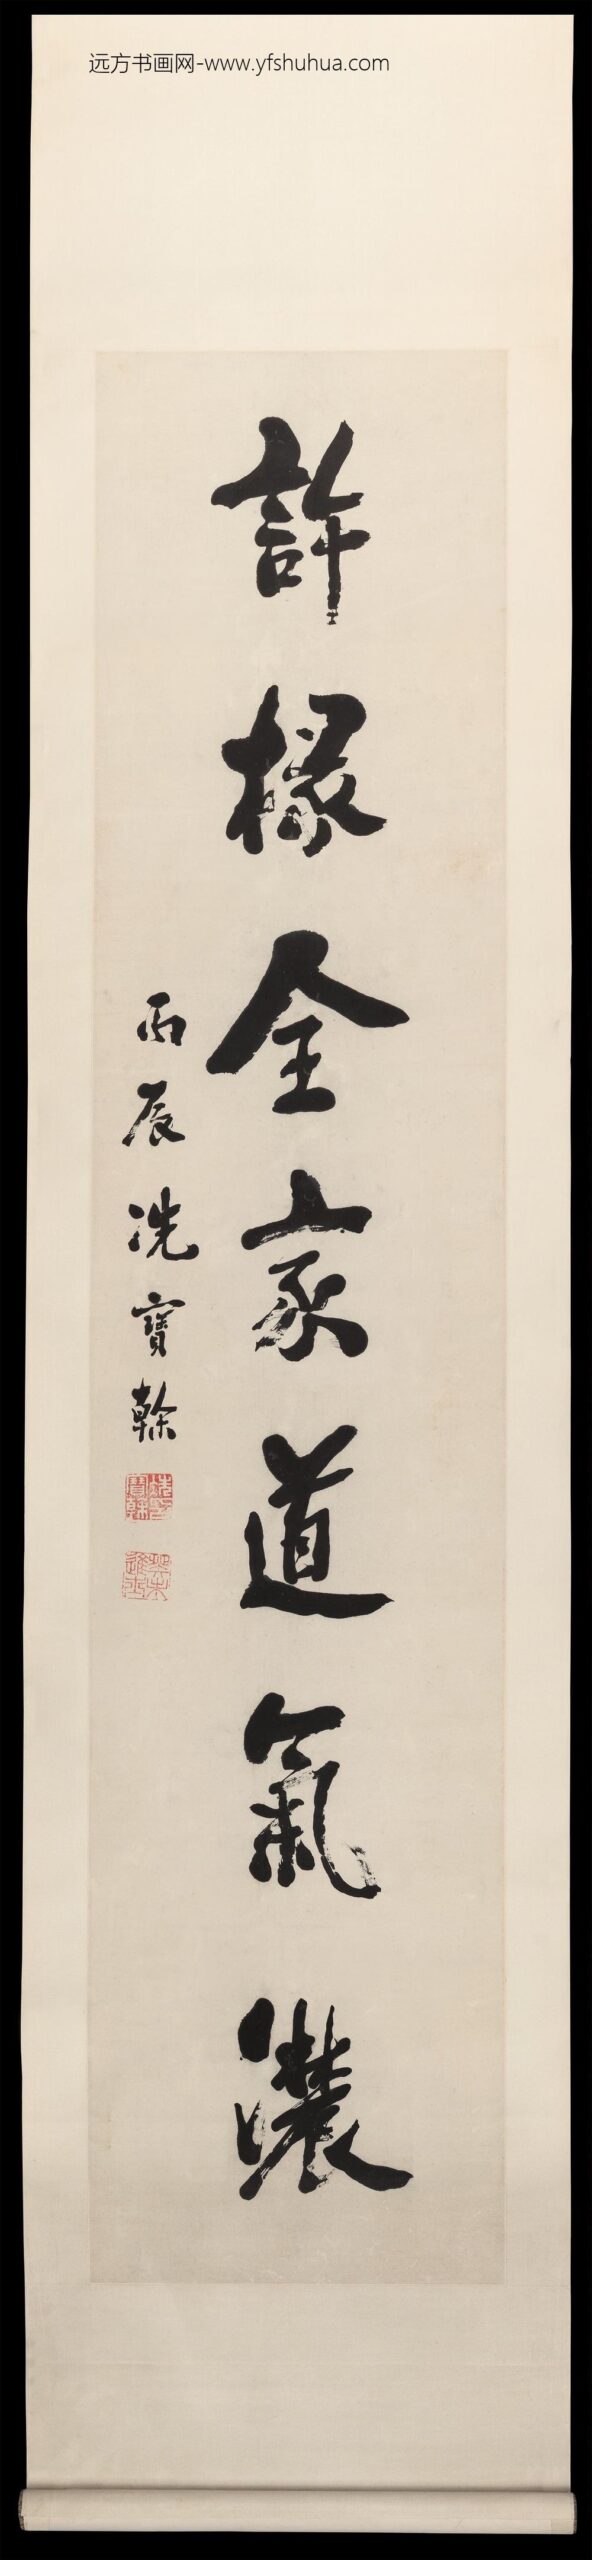 远方书画网-www.yfshuhua.com
許椽全家道氣濃
丙辰冼寶榦
冼寶榦